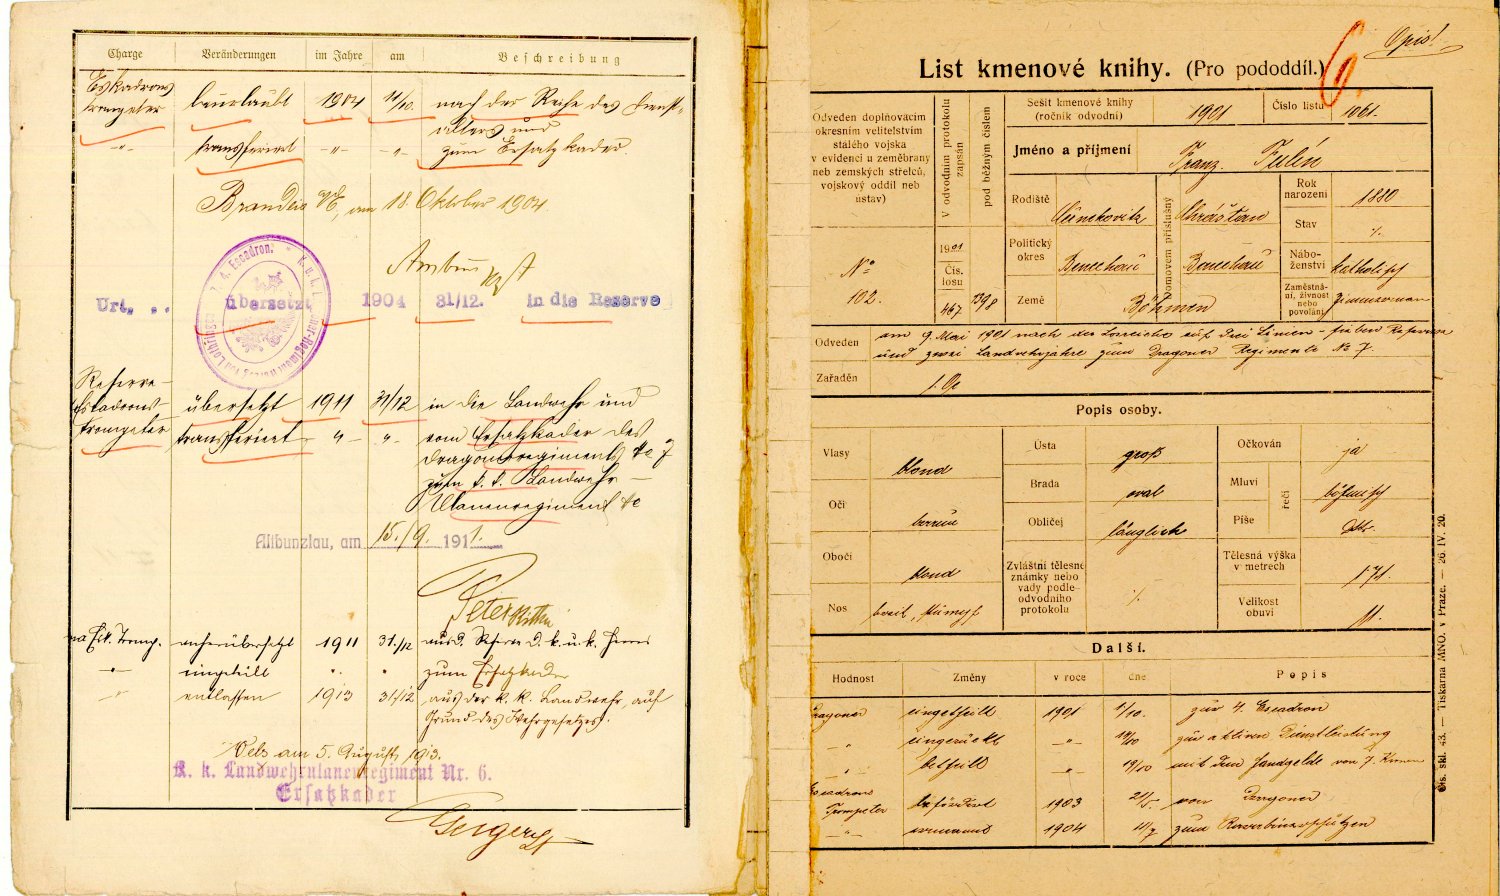 Charge Veränderungen im Jahre am Beschreibung
Eskadrons
trompeter beurlaubt 1904 11/10. nach der Reihe des Dienst-
alters und
-"- transferiert -"- -"- zum Ersatzkader.
Brandeis a/E, am 18. Oktober 1904
Url. übersetzt 1904 31/12. in die Reserve
4. Escadron.
Reserve-
Eskadrons- übersetzt 1911 31/12 in die Landwehr und
trompeter transferiert -"- -"- vom Ersatzkader des
Dragonerregiments No 7
zum k. k. Landwehr-
Ulanenregiment No
Altbunzlau, am 15./9. 1911.
Peter
Esk. Tromp. anherübersetzt 1911 31/12 aus d. Reserve d. k. u. k. Heeres
-"- eingeteilt " " zum Ersatzkader
-"- entlassen 1913 31/12 aus der k. k. Landwehr auf
Grund des Wehrgesetzes.
Wels am 5. August 1913.
K. k. Landwehrulanenregiment Nr. 6.
Ersatzkader
Geiger
Opis!
6
List kmenové knihy. (Pro pododdíl.)
Odveden doplňovacím
okresním velitelstvím
stálého vojska
v evidenci u zeměbrany
neb zemských střelců,
vojskový oddíl neb
ústav)
No
102.
V odvodním protokolu
zapsán
pod běžným číslem
1901
Čís.
losu
467 1398
Sešit kmenové knihy
(ročník odvodní) 1901 Číslo listu 1061.
Jméno a příjmení Franz.
Rodiště
domovem příslušný
Chrášťan
Rok
narození 1880
Stav ./.
Politický
okres Beneschau Beneschau
Nábo-
ženství katholisch
Země Böhmen
Zaměstná-
ní, živnost
nebo
povolání Zimmermann
Odveden am 9. Mai 1901 nach der Losreihe auf drei Linien- sieben Reserve
und zwei Landwehrjahre zum Dragoner Regimente No 7.
Zařaděn
Popis osoby.
Vlasy blond Ústa groß Očkován ja
Oči braun Brada oval Mluví řečí böhmisch
Obličej länglich Píše dtto.
Obočí blond Zvláštní tělesné
známky nebo
vady podle
odvodního
protokolu ./.
Tělesná výška
v metrech 171.
Nos breit, stumpf Velikost
obuvi 11.
Další.
Hodnost Změny v roce dne Popis
Dragoner eingetheilt 1901 1/10. zur 4. Escadron
-"- eingerückt -"- zur aktiven Dienstleistung
-"- betheilt -"- 19/10 mit dem Handgelde von 7 Kronen
Escadrons
Trompeter befördert 1903 21/5. vom Dragoner
-"- ernannt 1904 11/7
Čís. skl. 43. — Tiskárna MNO. v Praze. — 26. IV. 20.